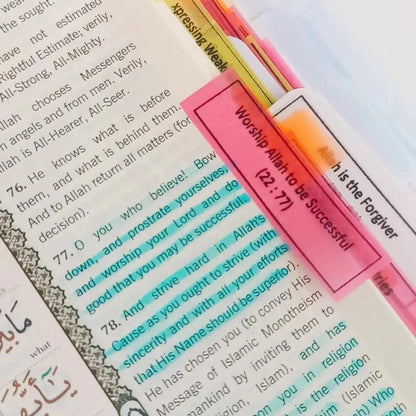 the sought;
have not estimated
Rightful Estimate; verily,
All-Strong, All-Mighty.
Allah chooses Messengers
from angels and from men. Verily,
Allah is All-Hearer, All-Seer.
76. He knows what is before
them, and what is behind them.
And to Allah return all matters (for
decision).
77. O you who believe! Bow
down, and prostrate yourselves,
and worship your Lord and do
good that you may be successful.
78. And strive hard in Allah's
Cause as you ought to strive (with
sincerity and with all your efforts
that His Name should be superior).
He has chosen you (to convey His
Message of Islamic Monotheism
mankind by inviting them to
religion, Islam), and has
you in religion
is the religion
Who
xpressing Weak
Worship Allah to be Successful
(22 : 77)
Allah is the Forgiver
what